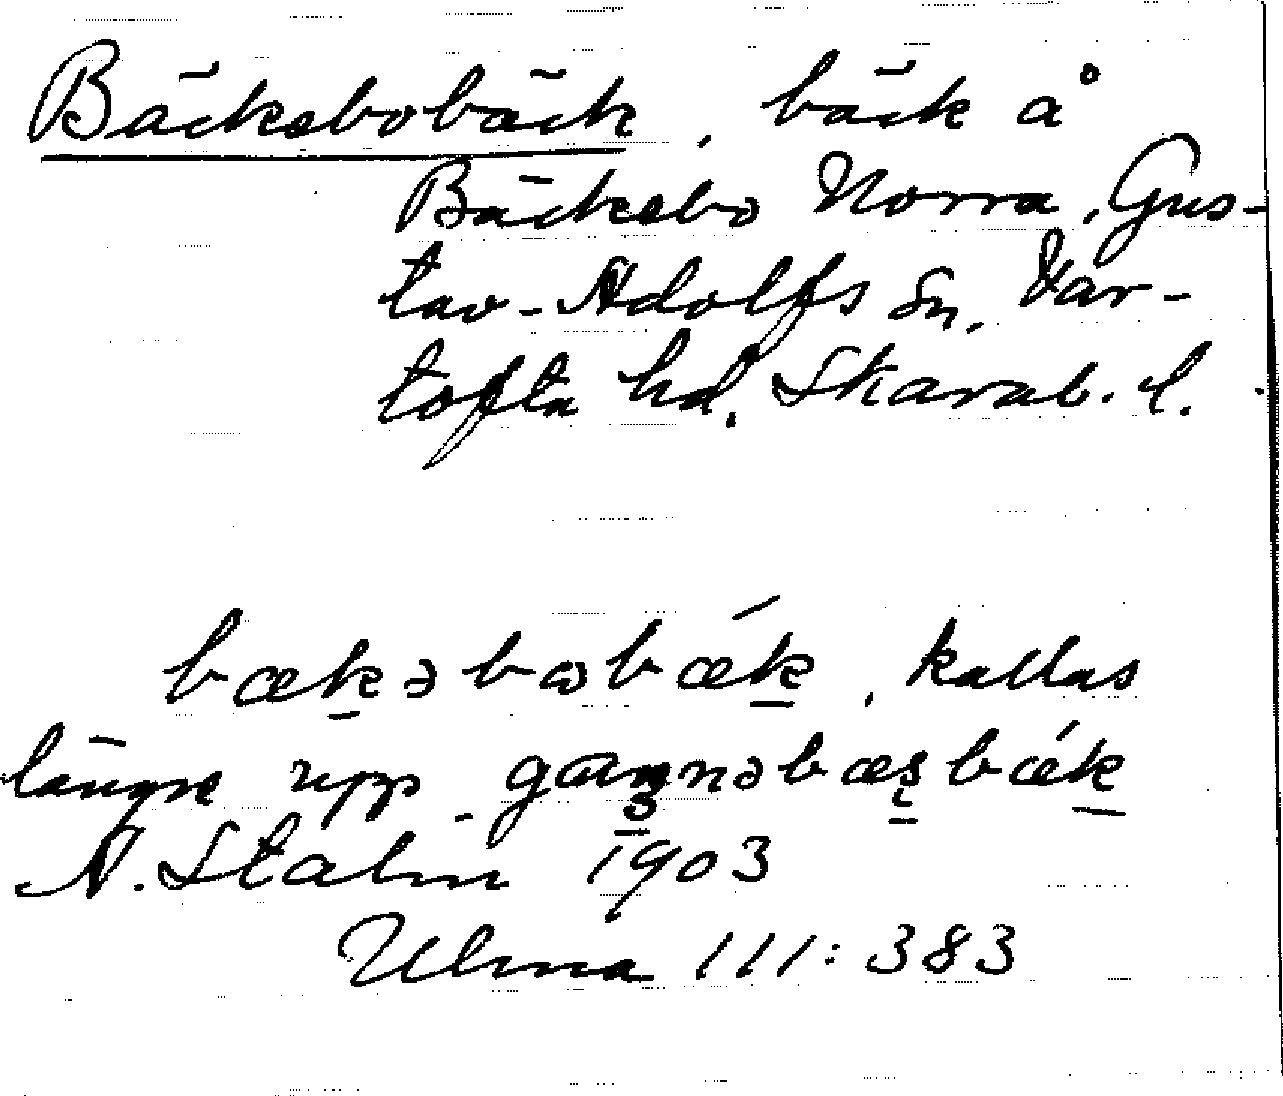 Bäckebobäck, bäck å
Bäckebo Norra, Gus-
tav-Adolfs sn, Var-
tofta hd, Skarab. l.
bækəbɷbǽk, kallas
längre upp
N. Stålin 1903
Ulma 111:383